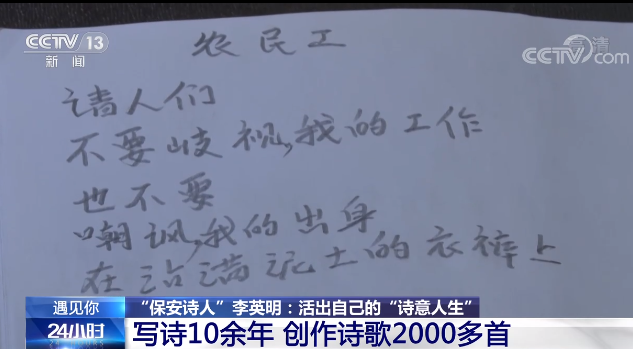 CCTV 13
新闻
高清
CCTV.com
农民工
请人们
不要歧视,我的工作
也不要
嘲讽,我的出身
在沾满泥土的衣裤上
遇见你
24小时
“保安诗人”李英明：活出自己的“诗意人生”
写诗10余年 创作诗歌2000多首